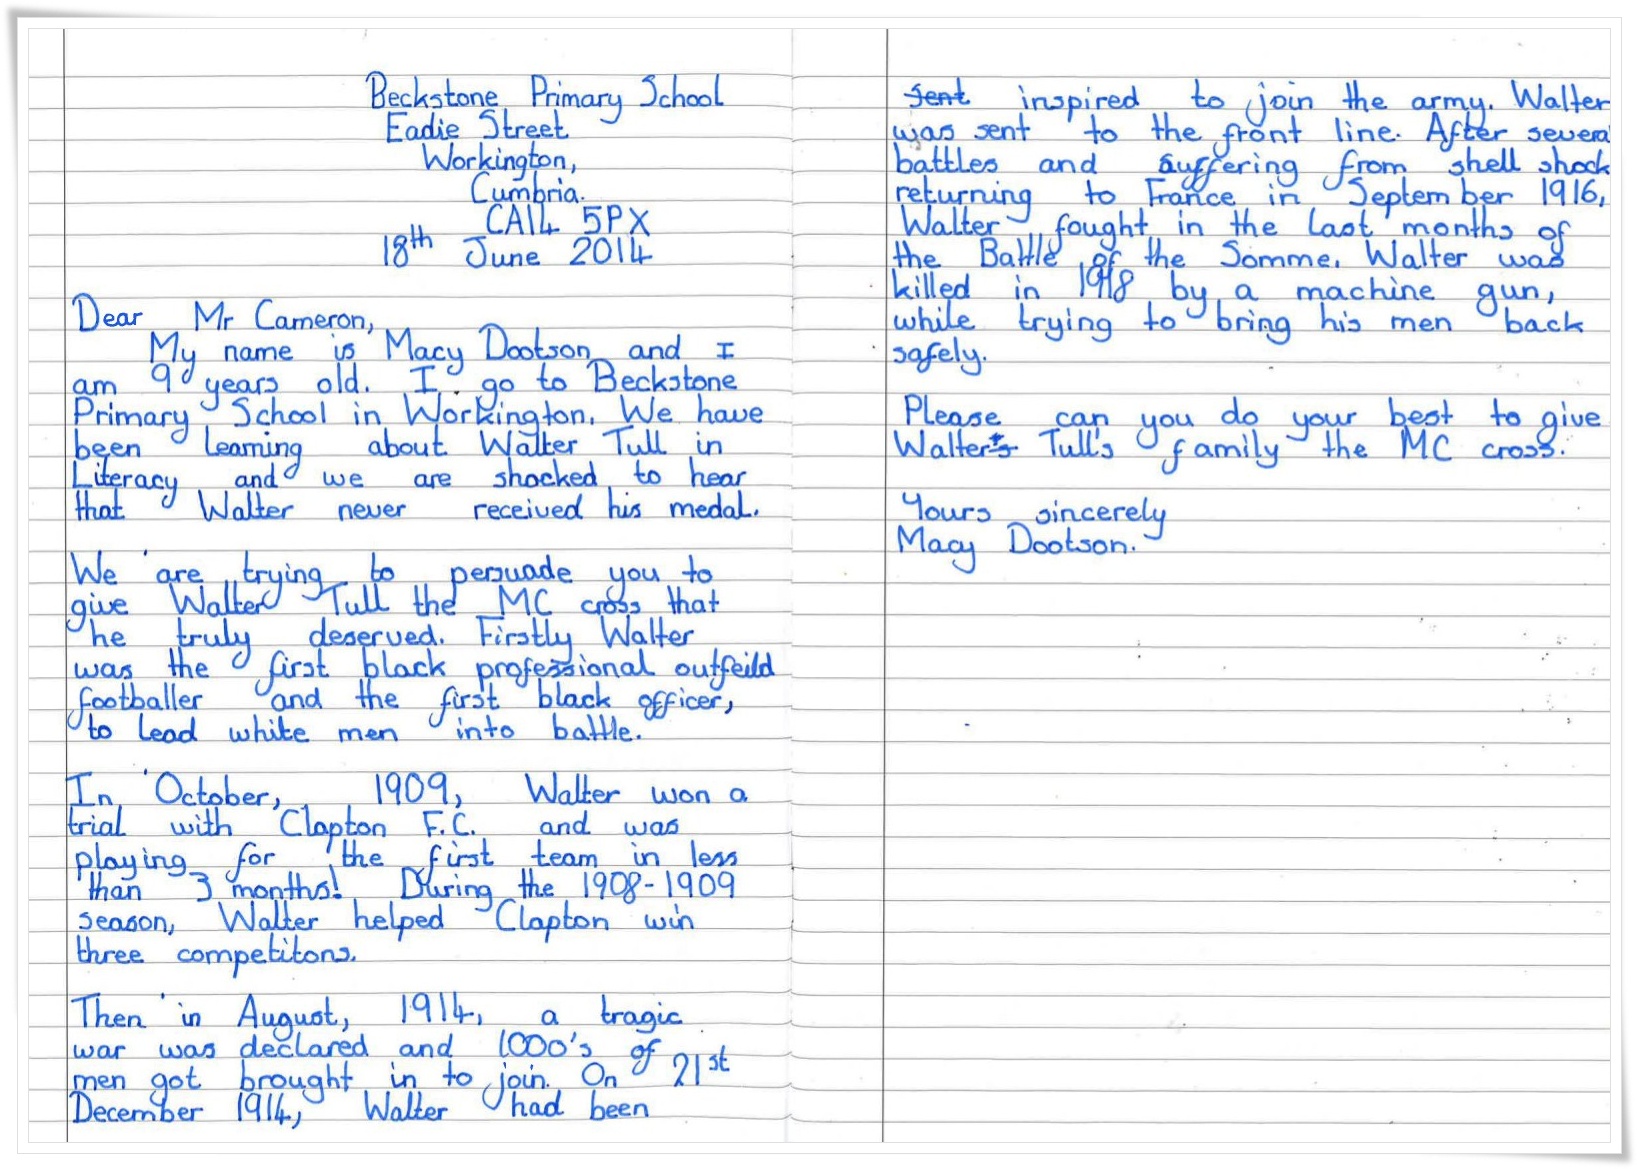 Beckstone Primary School
Eadie Street
Workington,
Cumbria.
CA14 5PX
18th June 2014
Dear Mr Cameron,
My name is Macy Dootson and I
am 9 years old. I go to Beckstone
Primary School in Workington. We have
been learning about Walter Tull in
Literacy and we are shocked to hear
that Walter never received his medal.
We are trying to persuade you to
give Walter Tull the MC cross that
he truly deserved. Firstly Walter
was the first black professional outfeild
footballer and the first black officer,
to lead white men into battle.
In October, 1909, Walter won a
trial with Clapton F.C. and was
playing for the first team in less
than 3 months! During the 1908-1909
season, Walter helped Clapton win
three competitons.
Then in August, 1914, a tragic
war was declared and 1000's of
men got brought in to join. On 21st
December 1914, Walter had been
sent inspired to join the army. Walter
was sent to the front line. After severa
battles and suffering from shell shock
returning to France in September 1916,
Walter fought in the last months of
the Battle of the Somme. Walter was
killed in 1918 by a machine gun,
while trying to bring his men back
safely.
Please can you do your best to give
Walter's Tull's family the MC cross.
Yours sincerely
Macy Dootson.